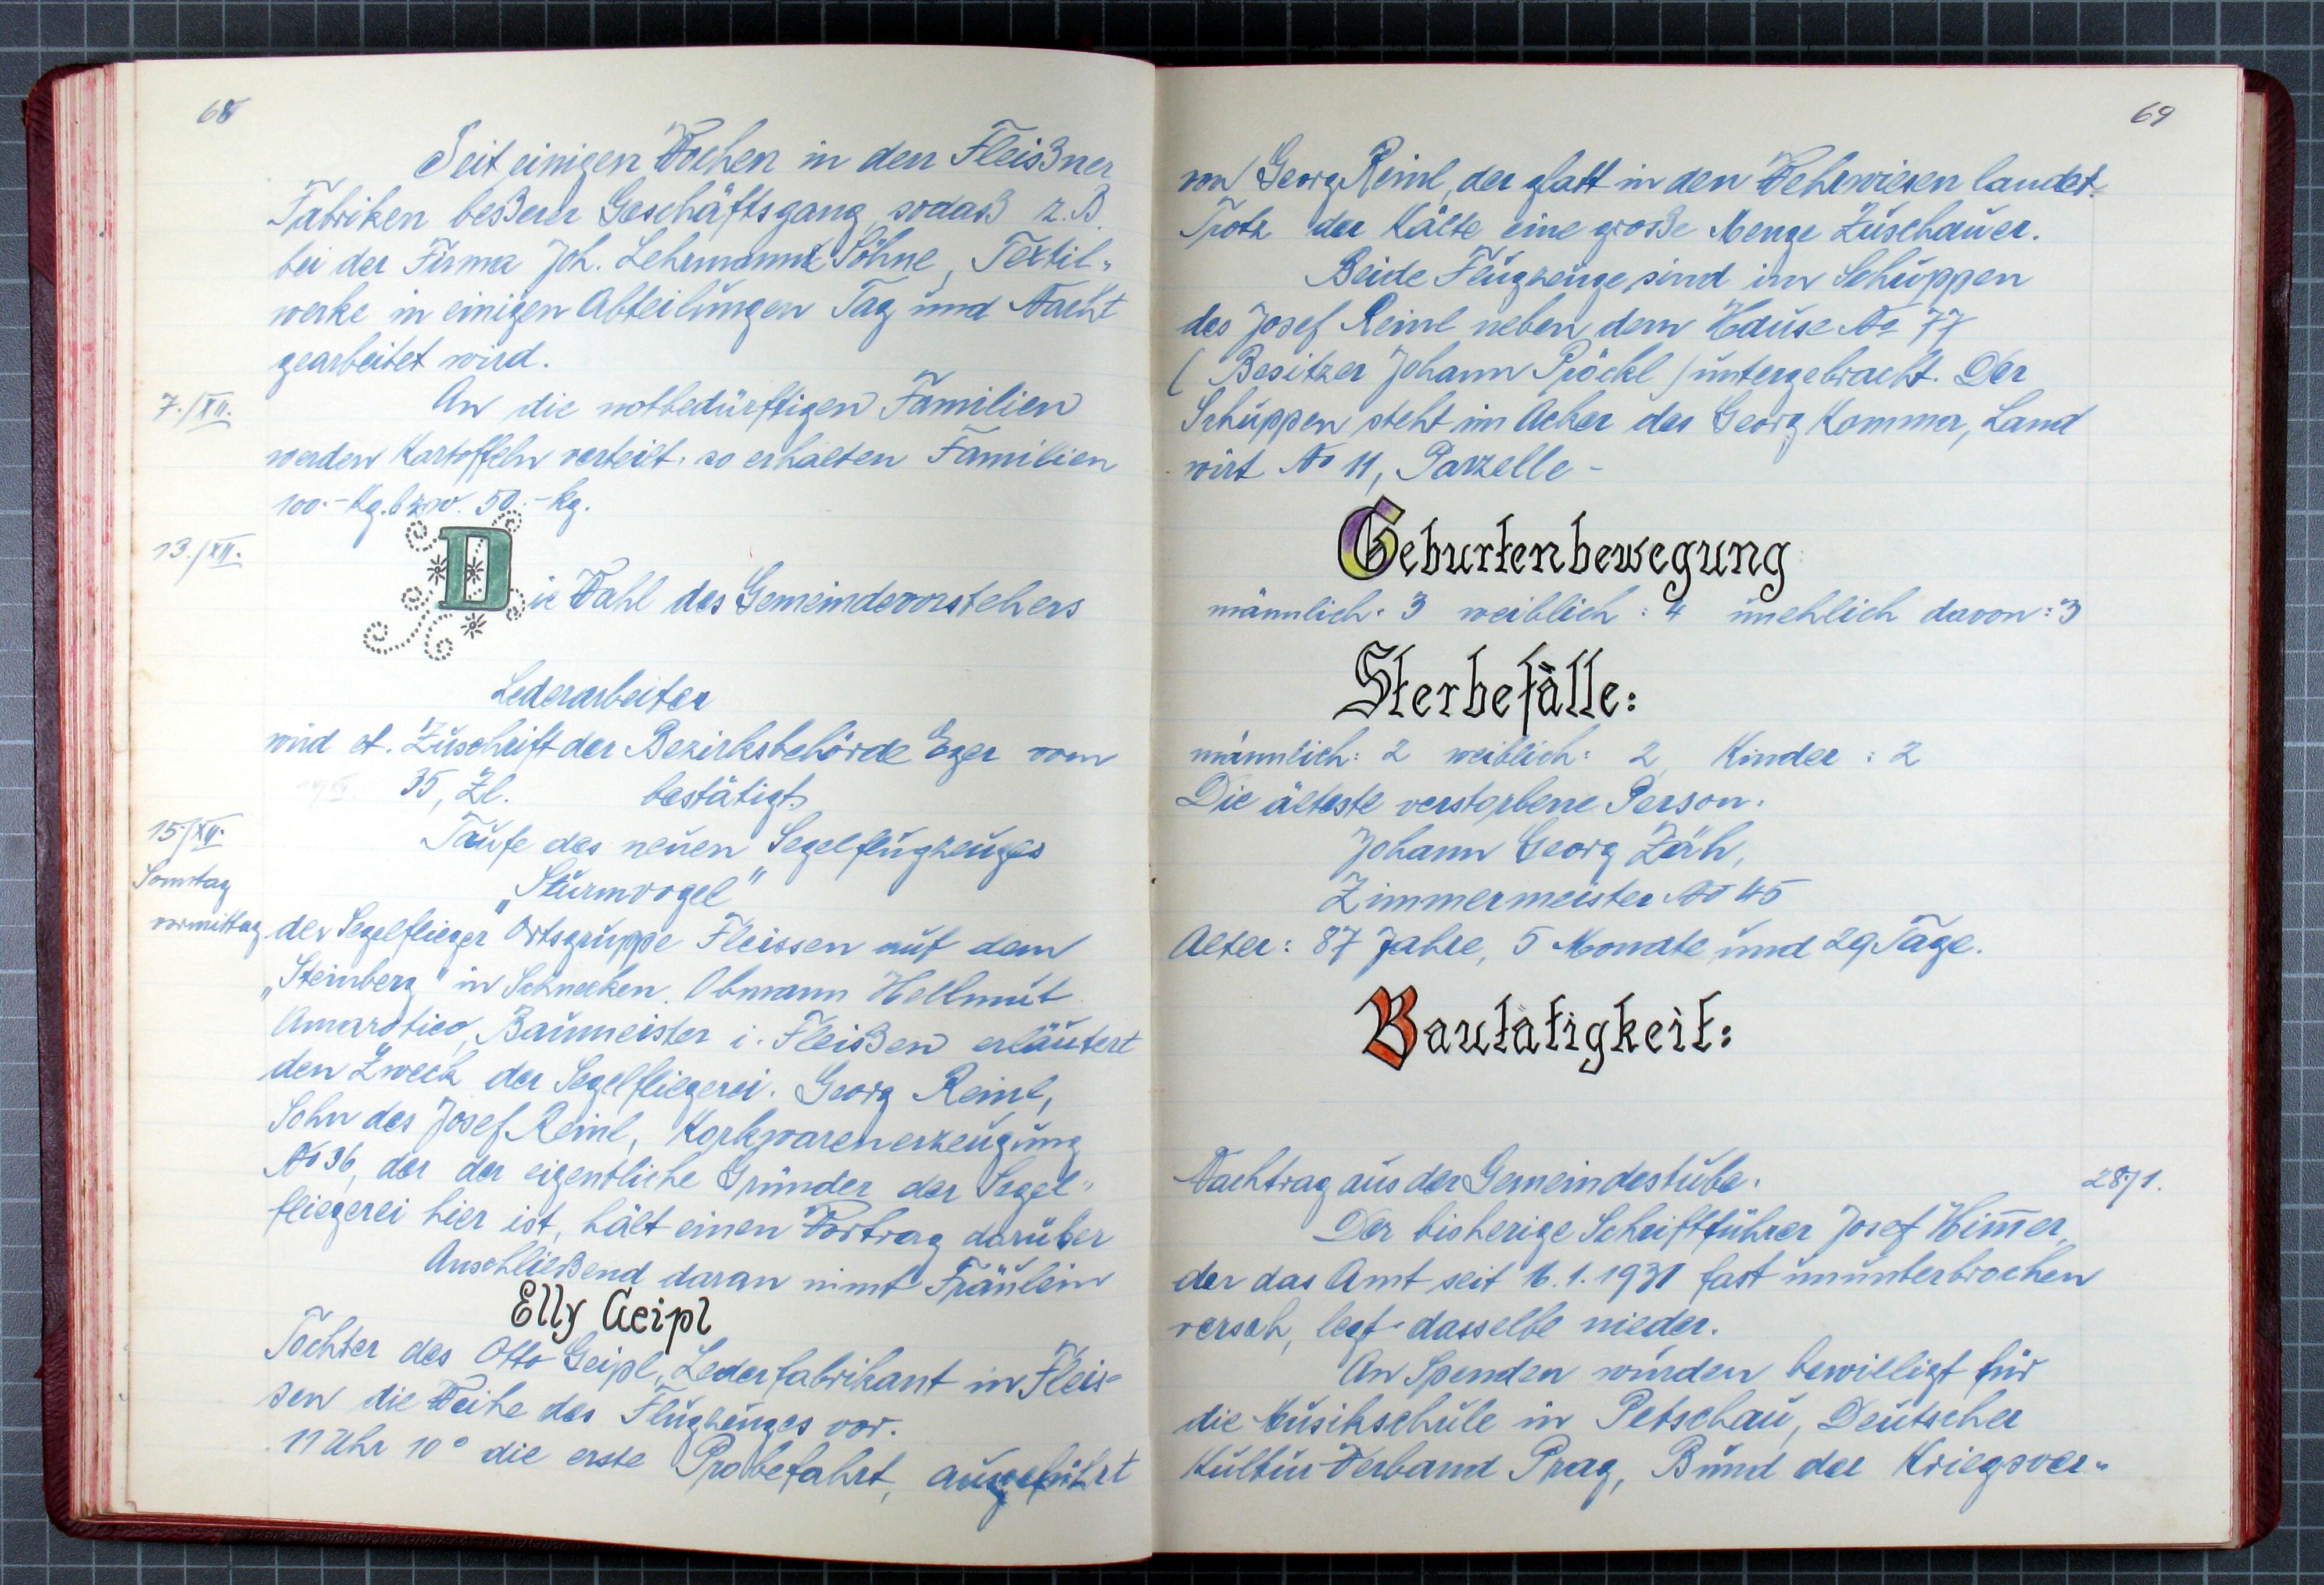 68
Seit einigen Wochen in den Fleißner
Fabriken beßerer Geschäftsgang, sodaß z.B.
bei der Firma Joh. Lehrmann & Söhne, Textil-
werke in einigen Abteilungen Tag und Nacht
gearbeitet wird.
7./XII.
An die notbedürftigen Familien
werden Kartoffeln verteilt. so erhalten Familien
100.- Kg. bzw. 50.- kg.
13./XII.
Die Wahl des Gemeindevorstehers
Lederarbeiter
wird lt. Zuschrift der Bezirksbehörde Eger vom
35, Zl. bestätigt.
15/XII.
Sonntag
vormittag
Taufe des neuen Segelflugzeuges
„Sturmvogel"
der Segelflieger Ortsgruppe Fleissen auf dem
„Steinberg" in Schnecken. Obmann Hellmut
Baumeister i. Fleißen erläutert
den Zweck der Segelfliegerei. Georg Reinl,
Sohn des Josef Reinl, Korkwarenerzeugung
No 36, der der eigentliche Gründer der Segel-
fliegerei hier ist, hält einen Vortrag darüber
Anschließend daran nimt Fräulein
Elly Geipl
Tochter des Otto Geipl, Lederfabrikant in Fleis-
sen die Weihe des Flugzeuges vor.
11 Uhr 10° die erste Probefahrt, ausgeführt
69
von Georg Reinl, der glatt in den Wehrwiesen landet.
Trotz der Kälte eine große Menge Zuschauer.
Beide Flugzeuge sind im Schuppen
des Josef Reinl neben dem Hause No 77
( Besitzer Johann Pröckl ) untergebracht. Der
Schuppen steht im Acker des Georg Komma, Land
wirt No 11, Parzelle -
Geburtenbewegung
männlich: 3 weiblich: 4 unehlich davon: 3
Sterbefälle:
männlich: 2 weiblich: 2, Kinder: 2
Die älteste verstorbene Person:
Johann Georg Zäh,
Zimmermeister No 45
Alter: 87 Jahre, 5 Monate und 29 Tage.
Bautätigkeit:
Nachtrag aus der Gemeindestube:
28./1.
Der bisherige Schriftführer Josef Him̅er,
der das Amt seit 16.1.1931 fast ununterbrochen
versah, legt dasselbe nieder.
An Spenden wurden bewilligt für
die Musikschule in Petschau, Deutscher
Kultur-Verband Prag, Bund der Kriegsver-